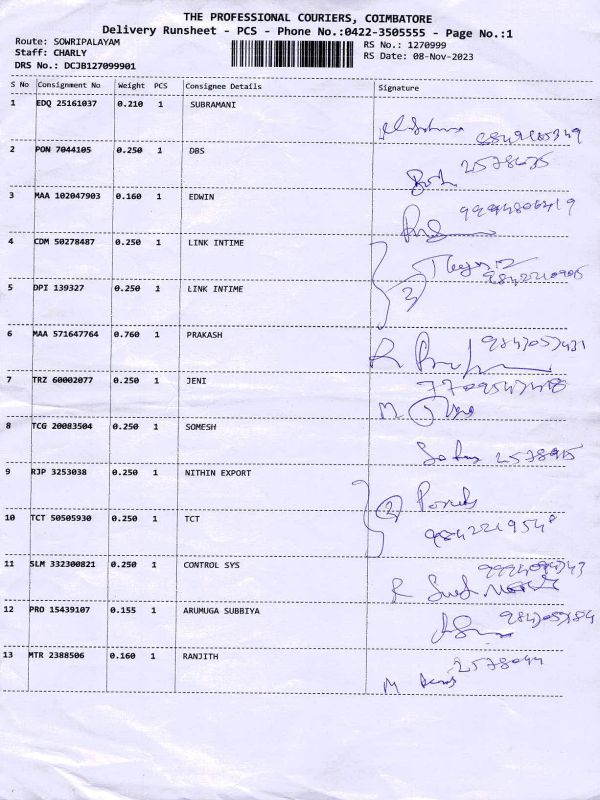 THE PROFESSIONAL COURIERS, COIMBATORE
Delivery Runsheet - PCS - Phone No.:0422-3505555 - Page No.:1
Route: SOWRIPALAYAM RS No.: 1270999
Staff: CHARLY RS Date: 08-Nov-2023
DRS No.: DCJB127099901
S No Consignment No Weight PCS Consignee Details Signature
1 EDQ 25161037 0.210 1 SUBRAMANI
2 PON 7044105 0.250 1 DBS
2578635
3 MAA 102047903 0.160 1 EDWIN
4 CDM 50278487 0.250 1 LINK INTIME
5 DPI 139327 0.250 1 LINK INTIME
2
6 MAA 571647764 0.760 1 PRAKASH
7 TRZ 60002077 0.250 1 JENI
M
8 TCG 20083504 0.250 1 SOMESH
2578915
9 RJP 3253038 0.250 1 NITHIN EXPORT
2
10 TCT 50505930 0.250 1 TCT
11 SLM 332300821 0.250 1 CONTROL SYS
12 PRO 15439107 0.155 1 ARUMUGA SUBBIYA
13 MTR 2388506 0.160 1 RANJITH
2578044
M